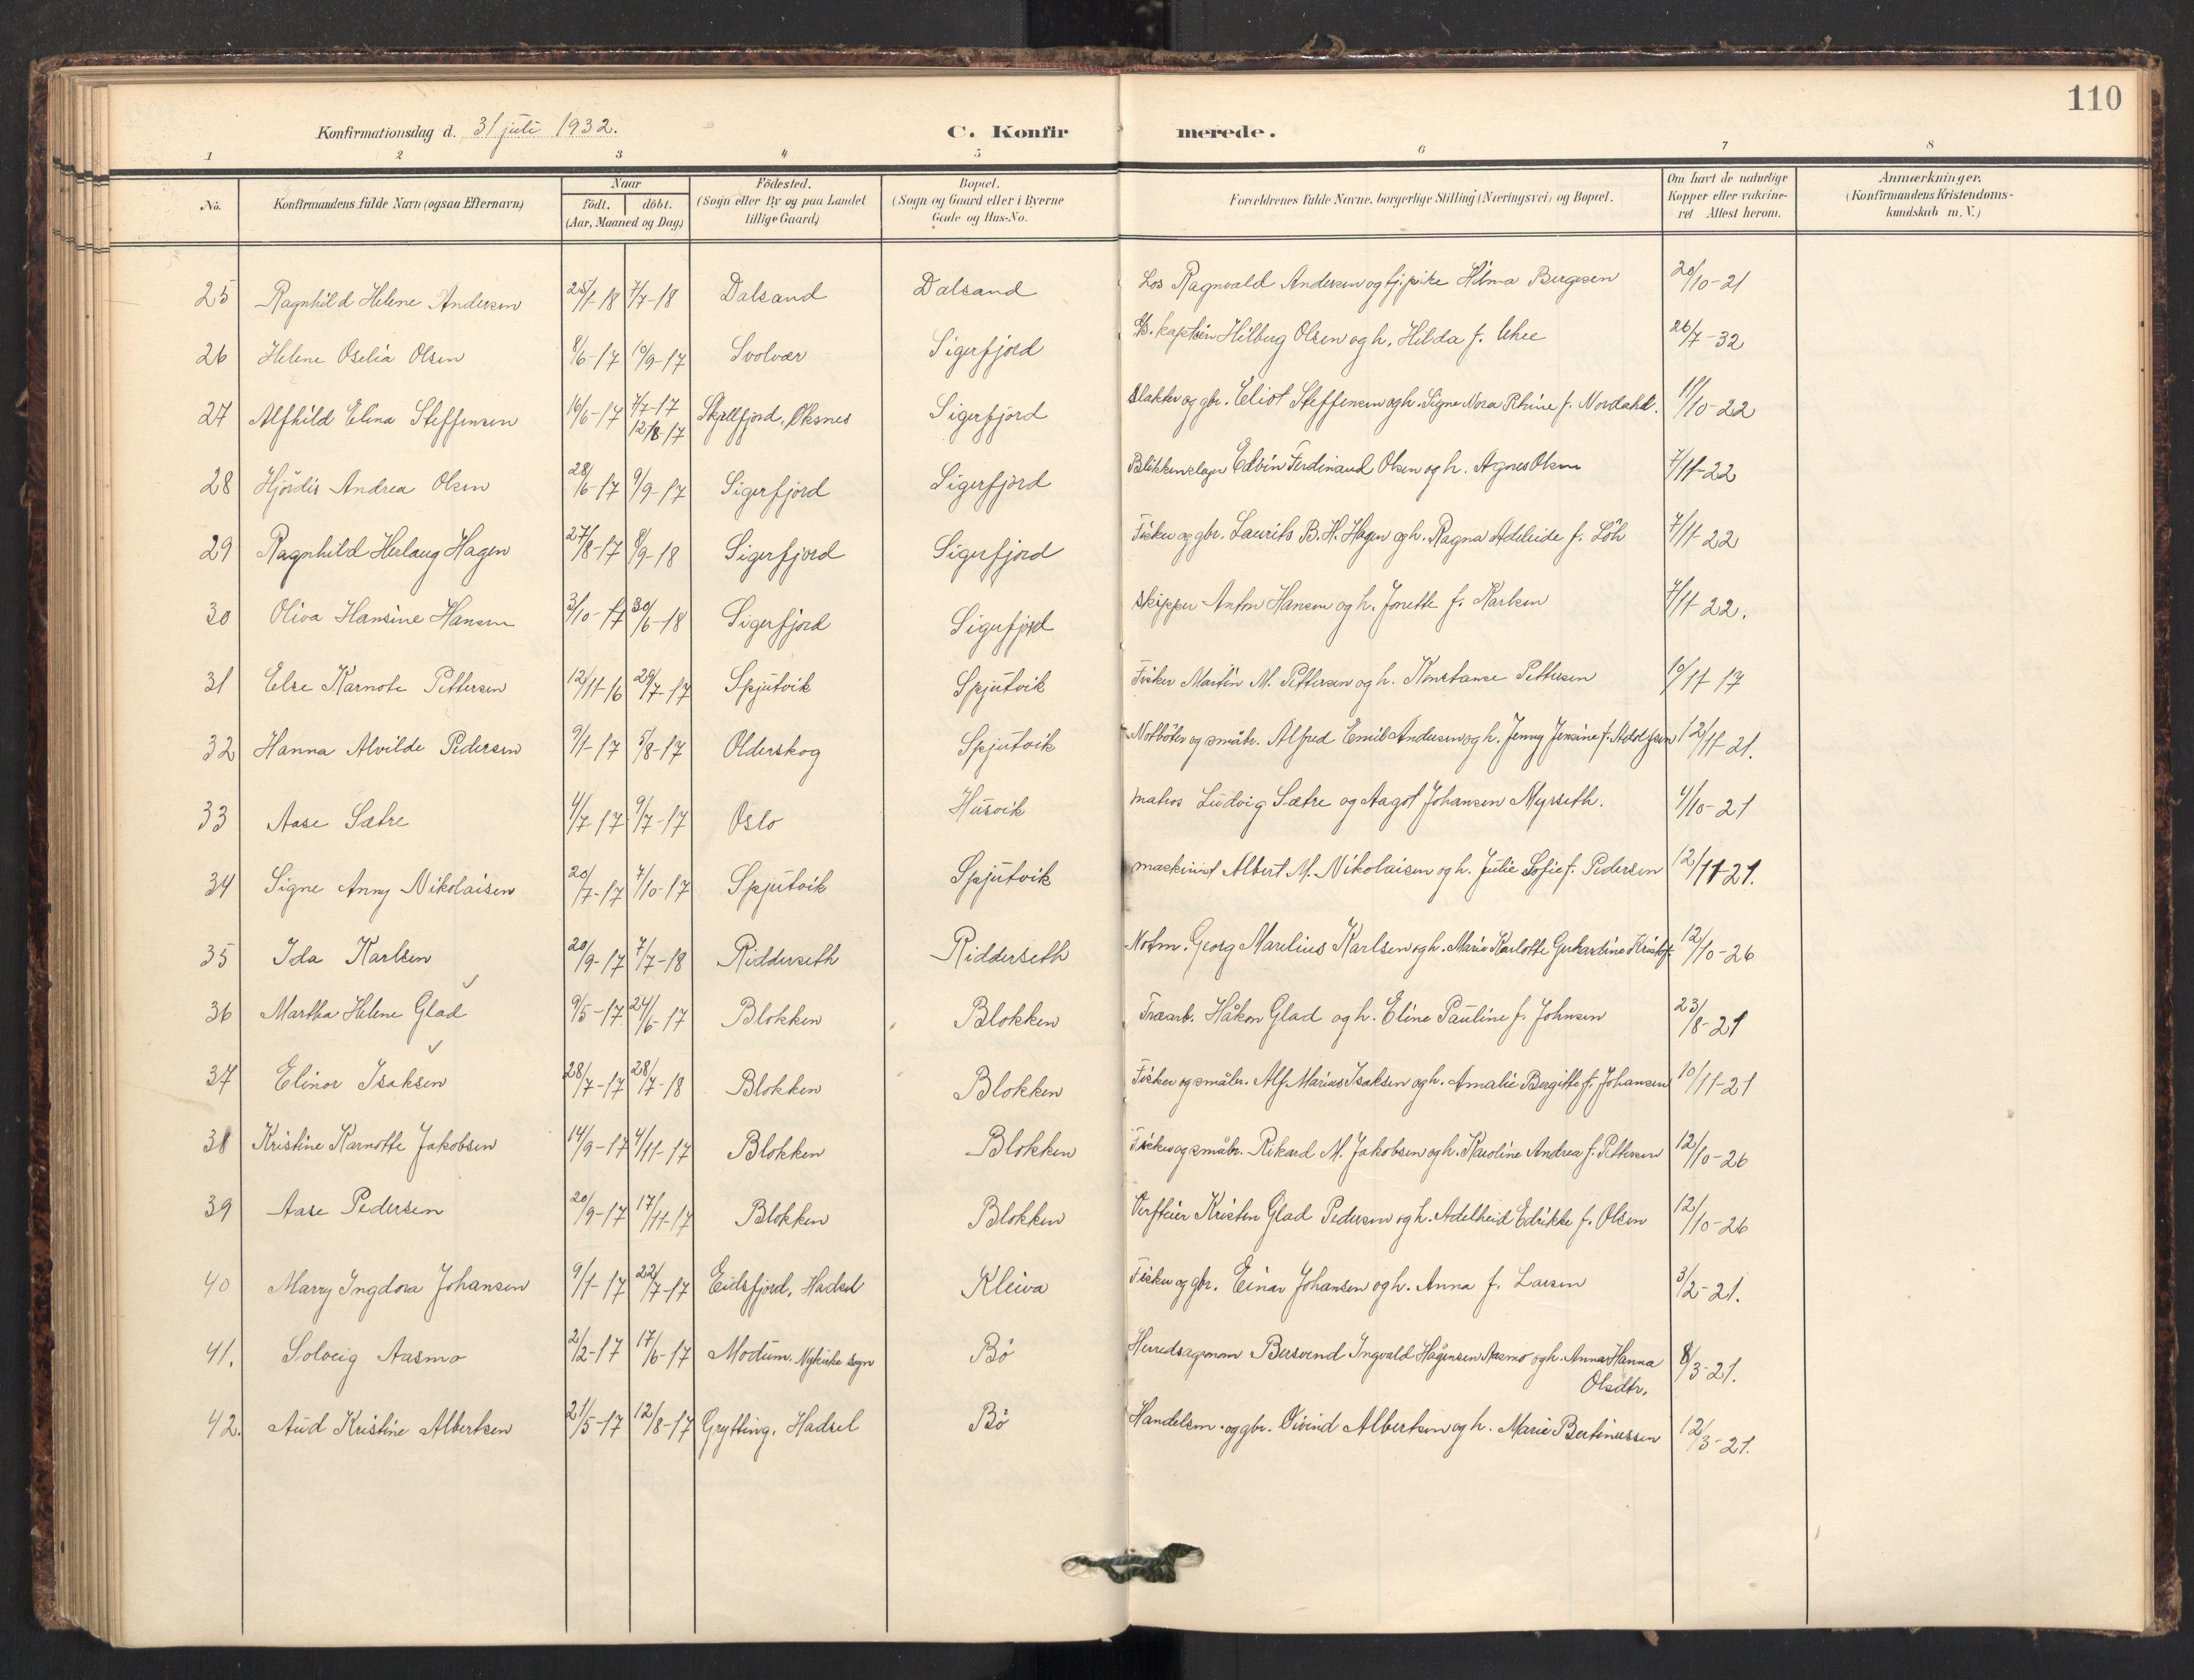 110
Konfirmationsdag d. 31 juli 1932.
C. Konfirmerede.
1 2 3 4 5 6 7 8
No. Konfirmandens fulde Navn (ogsaa Efternavn) Naar født. døbt. (Aar, Maaned og Dag) Födested. (Sogn eller By og paa Landet tillige Gaard) Bopæl. (Sogn og Gaard eller i Byerne Gade og Hus-No. Forældrenes fulde Navne, borgerlige Stilling (Næringsvei) og Bopæl. Om havt de naturlige Kopper eller vakcineret Attest herom. Anmærkninger. (Konfirmandens Kristendomskundskab m. V.)
25 Ragnhild Helene Andersen 25/1-18 7/7-18 Dalsand Dalsand Los Ragnvald Andersen og tj.pike Hilma Bergesen 20/10-21
26 Helene Oselia Olsen 8/6-17 10/9-17 Svolvær Sigerfjord kaptein Hilberg Olsen og h. Hilda f. 26/7-32
27 Alfhild Elina Steffensen 16/6-17 7/7-17 12/8-17 Skjellfjord, Øksnes Sigerfjord Slakter og gbr. Eliot Steffensen og h. Signe Nora Petrine f. Nordahl. 11/10-22
28 Hjördis Andrea Olsen 28/6-17 9/9-17 Sigerfjord Sigerfjord Blikkenslager Edvin Ferdinand Olsen og h. Agnes Olsen 7/11-22
29 Ragnhild Herlaug Hagen 27/8-17 8/9-18 Sigerfjord Sigerfjord Fisker og gbr. Laurits B. H. Hagen og h. Ragna Adeleide f. Löh 7/11-22
30 Oliva Hansine Hansen 3/10-17 30/6-18 Sigerfjord Sigerfjord Skipper Anton Hansen og h. Jonette f. Karlsen 7/11-22.
31 Else Karnote Pettersen 12/11-16 29/7-17 Spjutvik Spjutvik Fisker Martin M. Pettersen og h. Konstanse Pettersen 10/11-17
32 Hanna Alvilde Pedersen 9/1-17 5/8-17 Olderskog Spjutvik Notböter og småbr. Alfred Emil Andersen og h. Jenny Jensine f. Adolfsen 12/11-21.
33 Aase Sætre 4/7-17 9/7-17 Oslo Husvik Matros Ludvig Sætre og Aagot Johansen Myrseth. 4/10-21
34 Signe Anny Nikolaisen 20/7-17 7/10-17 Spjutvik Spjutvik Maskinist Albert M. Nikolaisen og h. Julie Sofie f. Pedersen 12/11-21.
35 Ida Karlsen 20/9-17 7/7-18 Ridderseth Ridderseth Notm. Georg Marelius Karlsen og h. Marie Karlotte Gerhardine Kristof. 12/10-26
36 Martha Helene Glad 9/5-17 24/6-17 Blokken Blokken Træarb. Håkon Glad og h. Eline Pauline f. Johnsen 23/8-21
37 Elinor Isaksen 28/7-17 28/7-18 Blokken Blokken Fisker og småbr. Alf Marius Isaksen og h. Amalie Bergitte f. Johansen 10/11-21
38 Kristine Karnotte Jakobsen 14/9-17 4/11-17 Blokken Blokken Fisker og småbr. Rikard M. Jakobsen og h. Karoline Andrea f. Pettersen 12/10-26
39 Aase Pedersen 20/9-17 17/11-17 Blokken Blokken Verfteier Kristen Glad Pedersen og h. Adelheid Edrikke f. Olsen 12/10-26
40 Marry Ingdora Johansen 9/1-17 22/7-17 Eidsfjord, Hadsel Kleiva Fisker og gbr. Einar Johansen og h. Anna f. Larsen 3/2-21.
41. Solveig Aasmo 2/2-17 17/6-17 Modum, Nykirke sogn Bö Herredsagronom Bersvend Ingvald Hågensen Aasmo og h. Anna Hanna Olsdtr. 8/3-21.
42. Aud Kristine Albertsen 21/5-17 12/8-17 Grytting, Hadsel Bö Handelsm. og gbr. Öivind Albertsen og h. Marie Bertinussen 12/3-21.